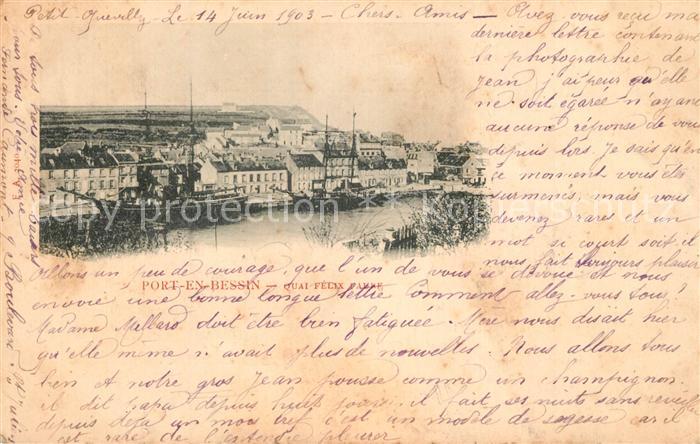 Petit-Quevilly. Le 14 Juin 1903 – Chers Amis – Avez-vous reçu ma
dernière lettre contenant
la photographie de
Jean j'ai peur qu'elle
ne soit égarée n'ayant
aucune réponse de vous
depuis lors. Je sais qu'en
ce moment vous êtes
surmenés, mais vous
devenez rares et un
mot si court soit il
nous fait toujours plaisir
Allons un peu de courage, que l'un de vous se dévoue et nous
envoie une bonne longue lettre Comment allez-vous tous?
Madame Mallard doit être bien fatiguée. Mère nous disait hier
qu'elle même n'avait plus de nouvelles. Nous allons tous
bien et notre gros Jean pousse comme un champignon.
il dit papa depuis huit jours. il fait ses nuits sans réveil
depuis déjà un mois bref c'est un modèle de sagesse car il
est rare de l'entendre pleurer
A tous trois mille baisers
sur tous. Votre amie
Fernande
9 Boulevard
PORT-EN-BESSIN — QUAI FÉLIX FAURE
copyright by